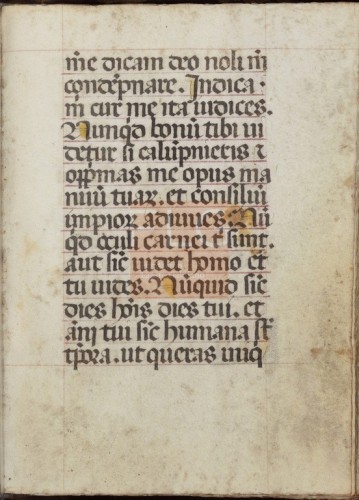 me dicam deo noli m̄
condēpnare. Indica ·
m̄ cur me ita iudices.
Nunq̄d bonū tibi ui
detur si calūpnieris ⁊
opp̄mas me opus ma
nuū tuaꝝ. et consiliū
impioꝝ adiuues. Nū
q̄d oculi carnei t̄ sunt.
aut sic̄ uidet homo et
tu uides. Nūquid sic̄
dies hōis dies tui. et
 āni tui sic̄ humana st̄
tp̄ora. ut queras iniq̄